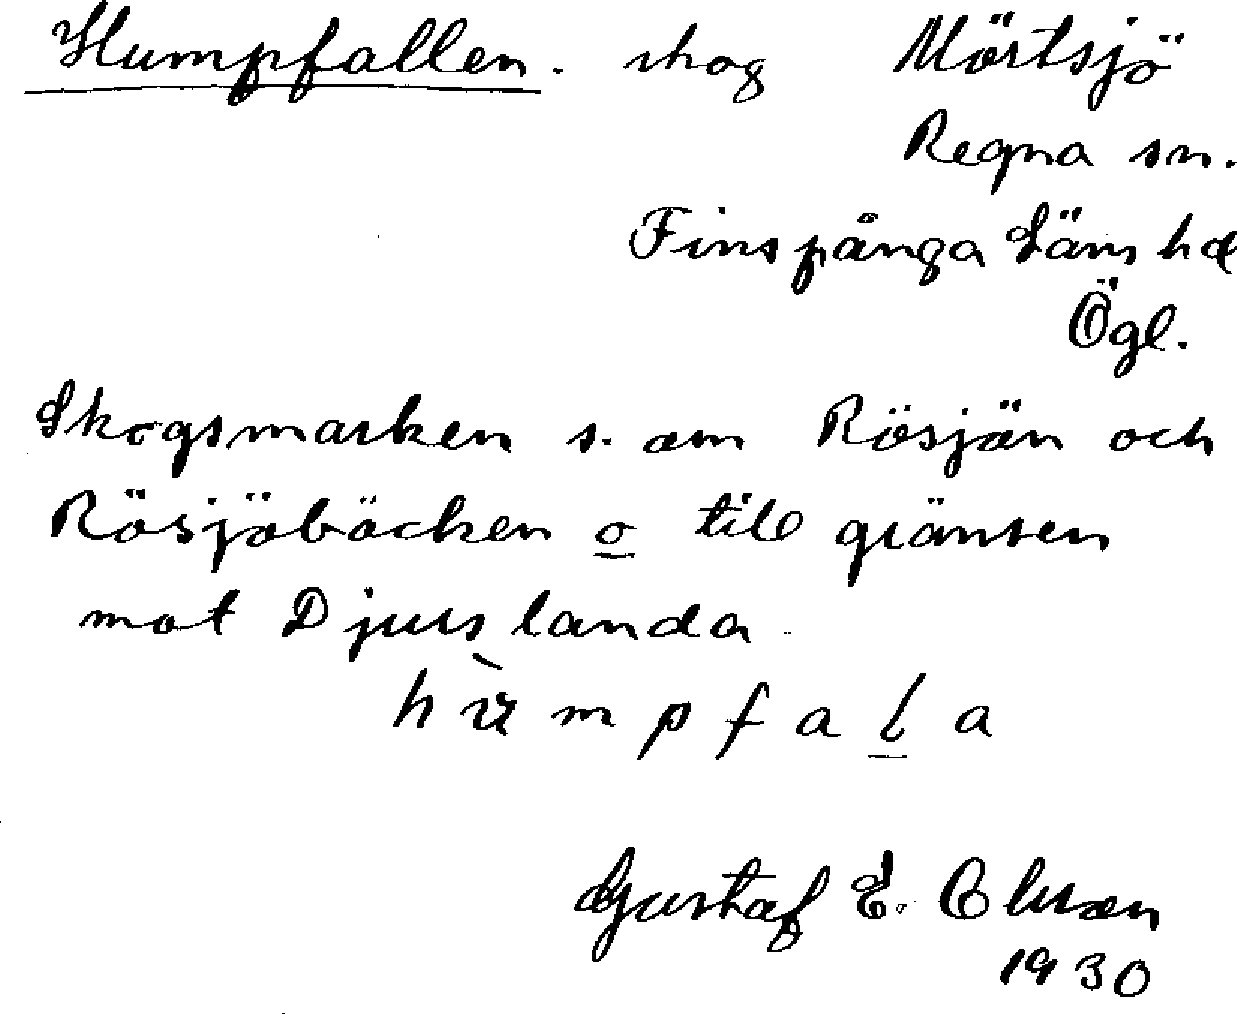 Humpfallen. skog Mörtsjö
Regna sn.
Finspånga Läns hd
Ögl.
Skogsmarken s. om Rösjön och
Rösjöbäcken o till gränsen
mot Djurslanda.
Gustaf E. Olsson
1930